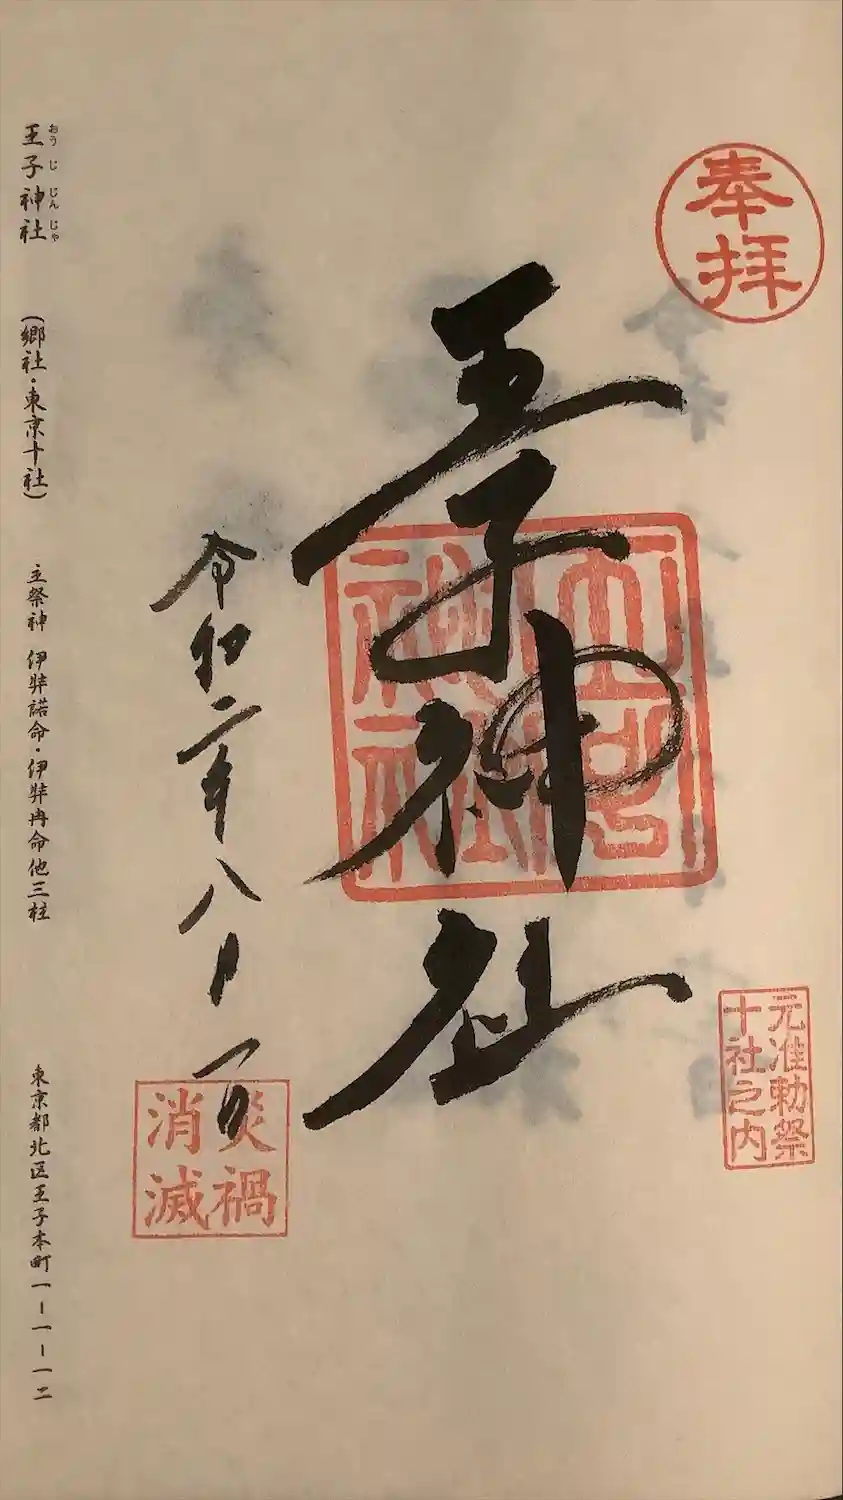 奉拝
元准勅祭
十社之内
王子神社
王子神社
令和二年八月一日
災禍
消滅
おうじじんじゃ
王子神社
(郷社・東京十社)
主祭神 伊弉諾命・伊弉冉命他三柱
東京都北区王子本町一ー一ー一二